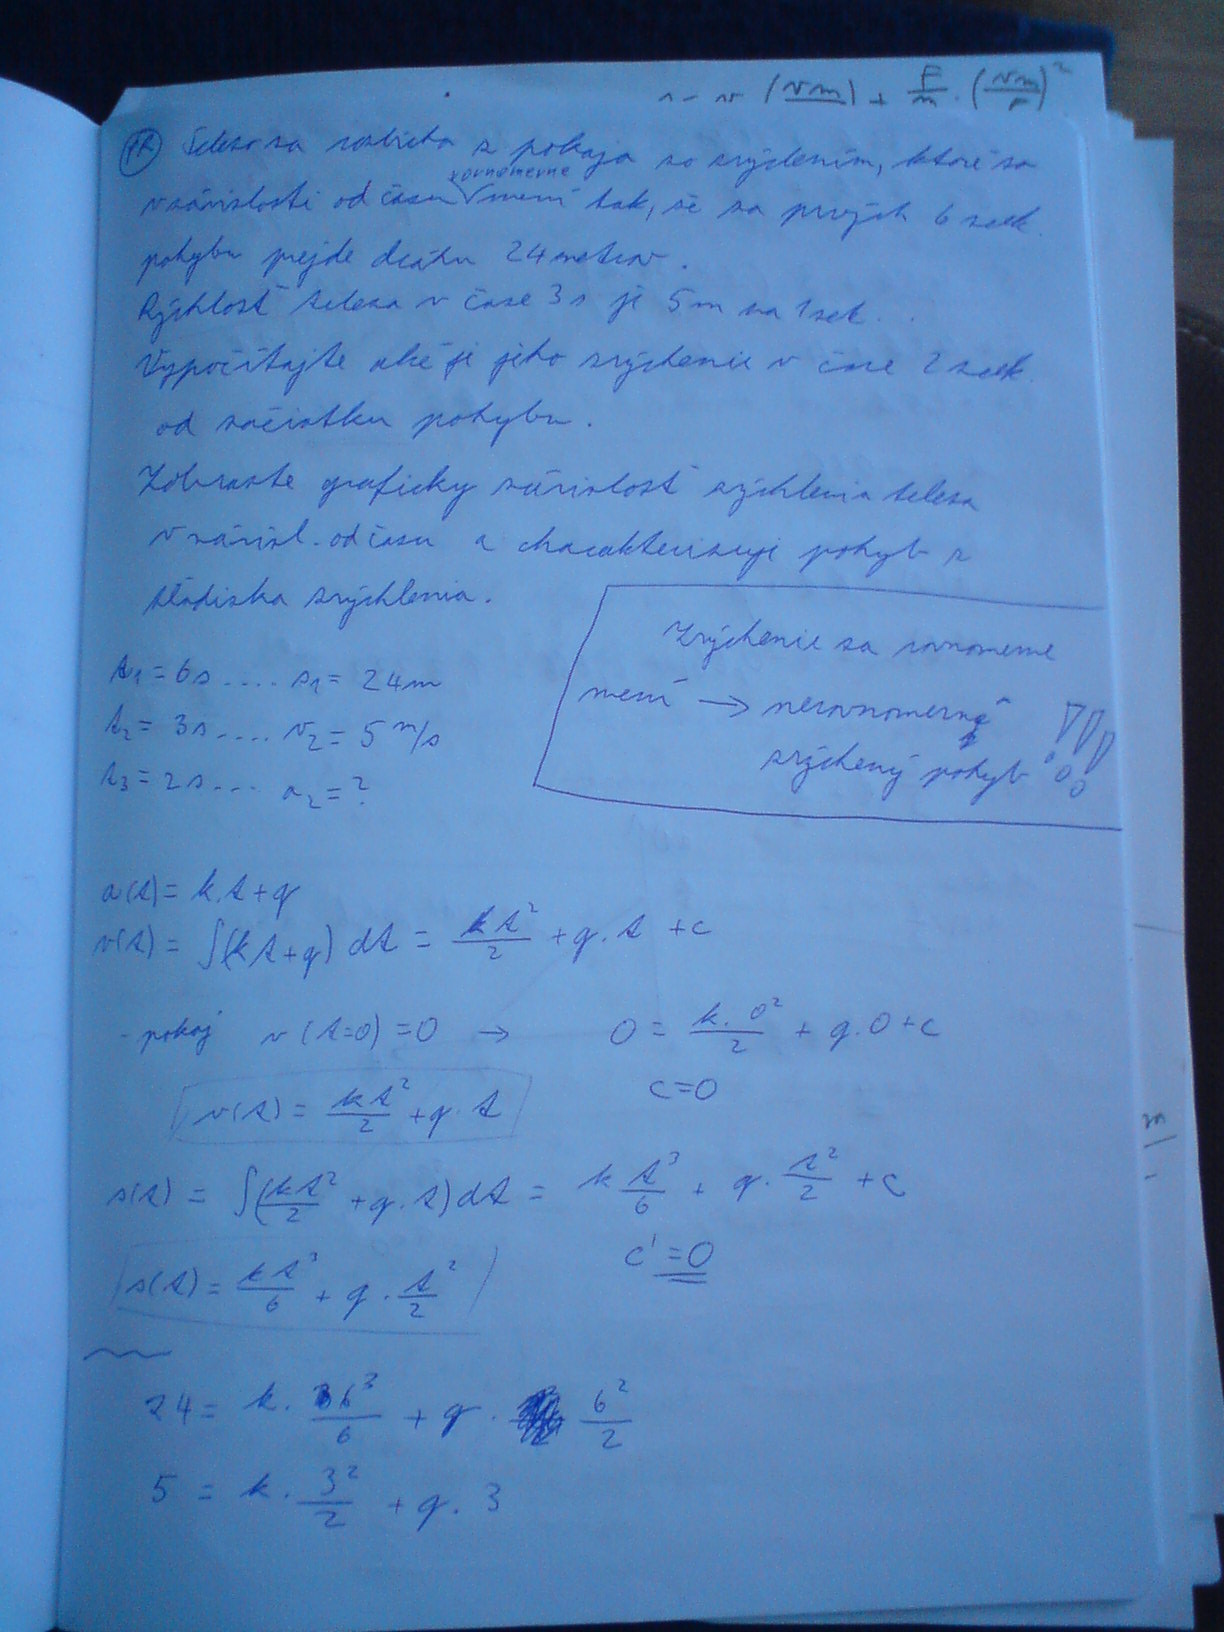 s = v (vm/) + F/m · (vm/F)²
PR Teleso sa rozbieha z pokoja so zrýchlením, ktoré sa
rovnomerne
v závislosti od času √ mení tak, že za prvých 6 sek.
pohybu prejde dráhu 24 metrov.
Rýchlosť telesa v čase 3 s je 5 m za 1 sek...
Vypočítajte aké je jeho zrýchlenie v čase 2 sek.
od začiatku pohybu.
Zobrazte graficky závislosť zrýchlenia telesa
v závisl. od času a charakterizuje pohyb z
hľadiska zrýchlenia.
Zrýchlenie sa rovnomerne
mení → nerovnomerný
zrýchlený pohyb !!!
t₁ = 6s .... s₁ = 24m
t₂ = 3s .... v₂ = 5 m/s
t₃ = 2s ... a₂ = ?
a(t) = k.t + q
v(t) = ∫(kt+q) dt = kt²/2 + q.t + c
- pokoj v(t=0) = 0 → 0 = k.0²/2 + q.0 + c
c=0
v(t) = kt²/2 + q.t
s(t) = ∫(kt²/2 + q.t)dt = k t³/6 + q. t²/2 + c
c' = 0
s(t) = kt³/6 + q. t²/2
24 = k. 6³/6 + q. 6²/2
5 = k. 3²/2 + q. 3